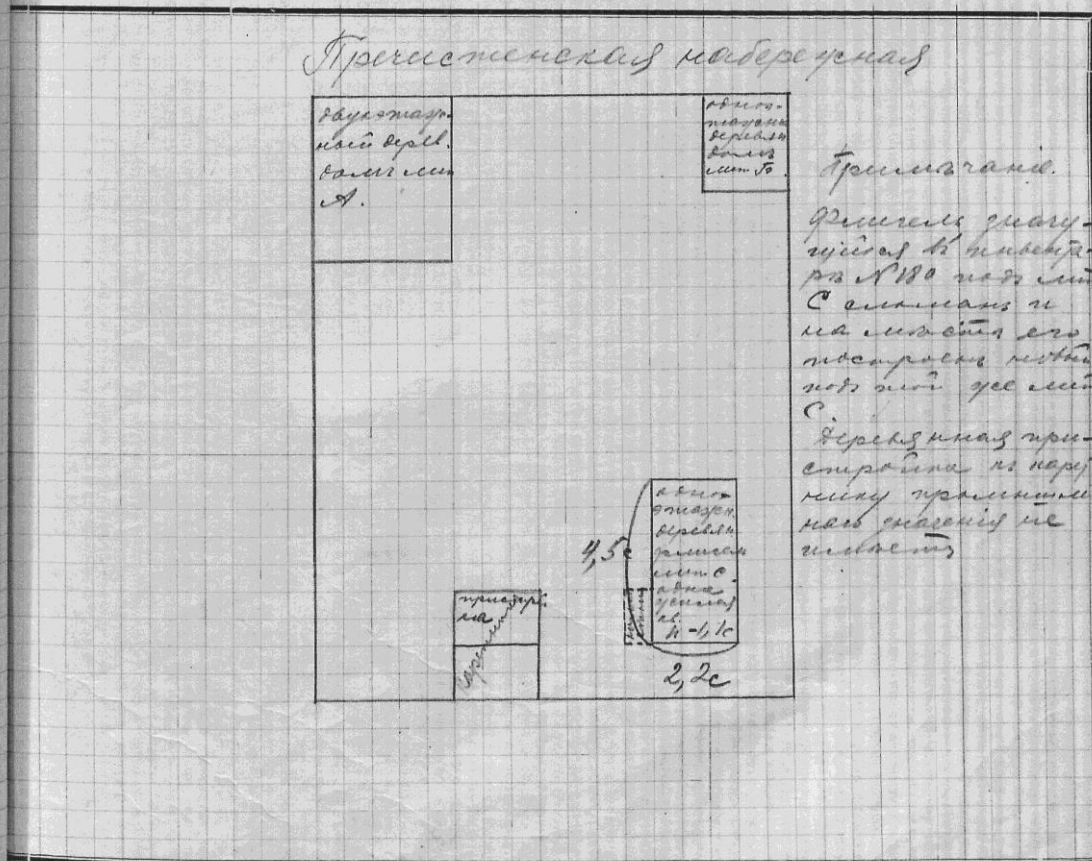 Пречистенская набережная
двухэтаж-
ный дерев.
домъ лит
А.
одноэ-
тажный
деревян
домъ
лит Б.
Примѣчаніе.
Флигель значу-
щійся въ инвента-
рѣ №180 подъ лит
С сломанъ и
на мѣстѣ его
построенъ новый
подъ той же лит
С.
Деревянная при-
стройка къ карет
нику
наго значенія не
имѣетъ
одно-
этажен.
деревян
флигель
лит С.
одна
жилая
кв.
h-1,1с
4,5с
2,2с
пристрой-
ка
каретникъ